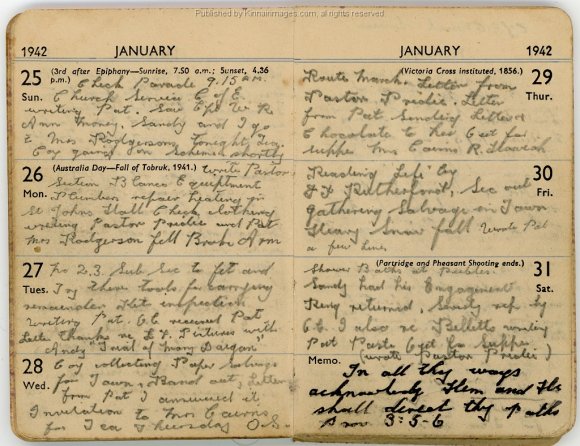 Published by Kinnairimages.com, all rights reserved.
1942 JANUARY
25 (3rd after Epiphany—Sunrise, 7.50 a.m.; Sunset, 4.36
Sun. p.m.) Church Parade 9.15 a.m.
Church Service C of E
writing Pat.
Ann money, Sandy and I go
to Mrs Rodgersons Tonight
Coy going on Scheme shortly
26 (Australia Day—Fall of Tobruk, 1941.) Write Pastor
Mon. Section Blanco Equiptment
Plumbers repair heating in
St Johns Hall Check clothing
writing Pastor Predie and Pat
Mrs Rodgerson fell Broke Arm
27 No 2.3. Sub Sec to fit and
Tues. Try there tools for carrying
remainder Kit inspection
Writing Pat. received Pat
Letter thanks Pictures with
Andy "Trial of Mary Dargan"
28 Coy collecting Paper Salvage
Wed. for Town, Band out, Letter
from Pat I answered it
Invitation to Mrs Cairns
for Tea Thursday
JANUARY 1942
(Victoria Cross instituted, 1856.) 29
Thur.
Route March. Letter from
Pastor Predie. Letter
from Pat Sending Letter &
Chocolate to her for
supper Mrs Cairns R.
30
Fri.
Reading Life by
Rutherford, Sec out
gathering Salvage in Town
Heavy Snow fall Wrote Pat
a few lines
(Partridge and Pheasant Shooting ends.) 31
Sat.
Shower Baths at Peebles
Sandy had his Engagement
Ring returned, Sandy rep by
I also writing
Pat Paste for Supper
(wrote Pastor Predie)
Memo. In all thy ways
acknowledg Him and He
shall direct thy Paths
Prov 3-5-6